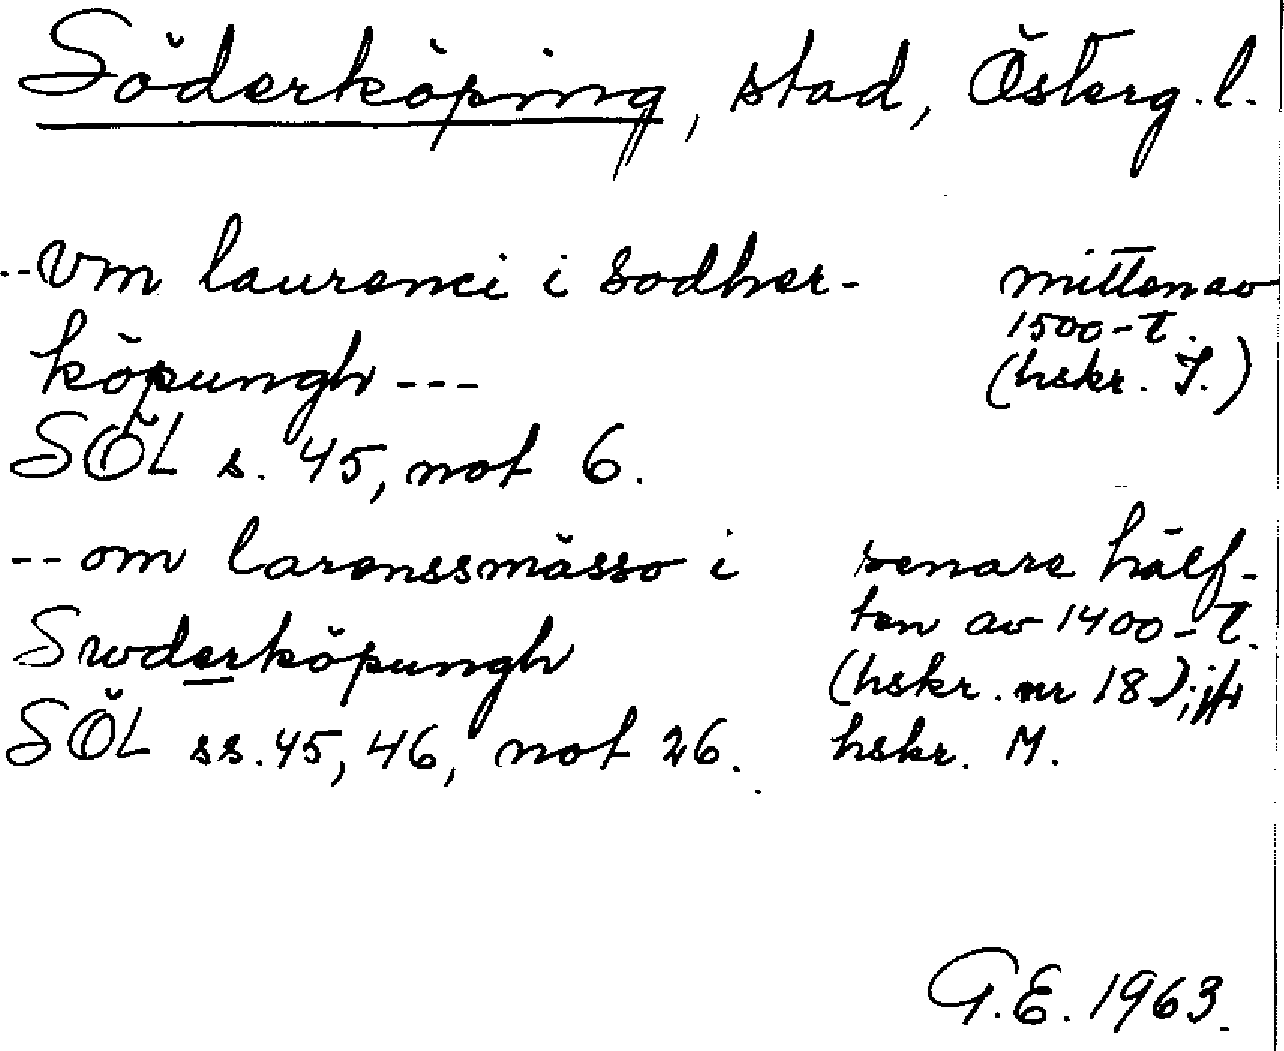 Söderköping, stad, Österg.l.
--Vm laurenci i sodher-
köpungh---
SÖL s. 45, not 6.
mitten av
1500-t.
(hskr. J.)
--om larenssmässo i
Swderköpungh
SÖL ss. 45, 46, not 26.
senare hälf-
ten av 1400-t.
(hskr. nr 18); jfr
hskr. M.
G.E. 1963.